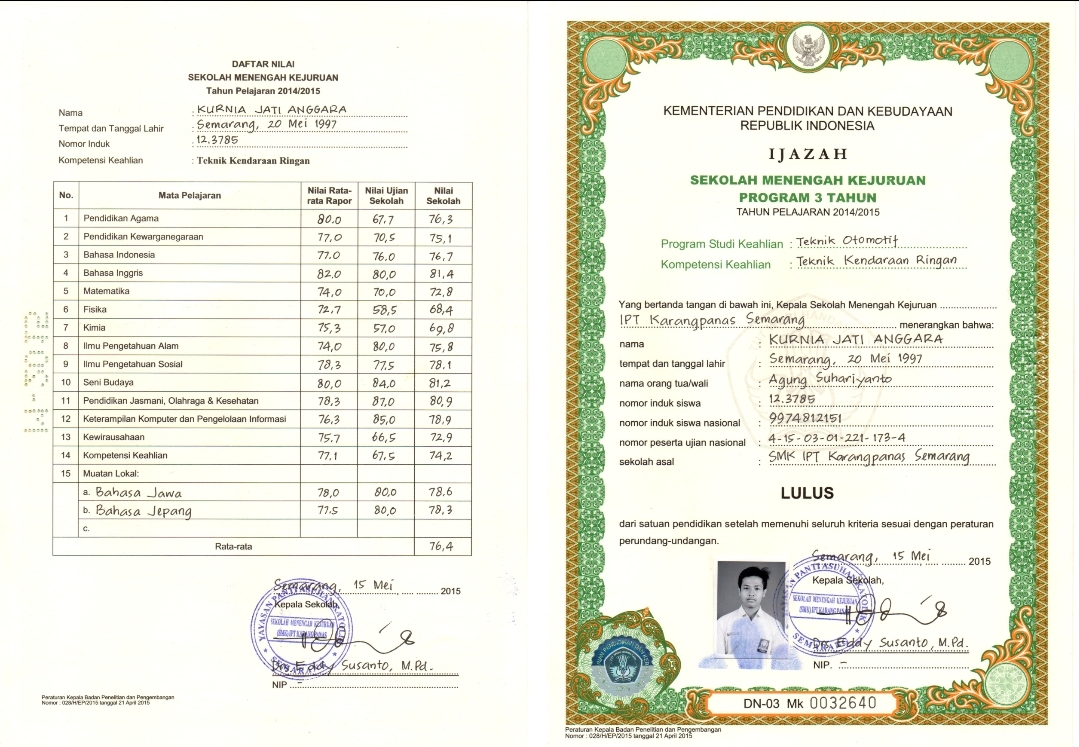 DAFTAR NILAI
SEKOLAH MENENGAH KEJURUAN
Tahun Pelajaran 2014/2015
Nama : KURNIA JATI ANGGARA
Tempat dan Tanggal Lahir : Semarang, 20 Mei 1997
Nomor Induk : 12.3785
Kompetensi Keahlian : Teknik Kendaraan Ringan
No. Mata Pelajaran Nilai Rata-rata Rapor Nilai Ujian Sekolah Nilai Sekolah
1 Pendidikan Agama 80.0 67.7 76,3
2 Pendidikan Kewarganegaraan 77,0 70,5 75,1
3 Bahasa Indonesia 77.0 76.0 76,7
4 Bahasa Inggris 82.0 80,0 81,4
5 Matematika 74,0 70,0 72,8
6 Fisika 72,7 58,5 68,4
7 Kimia 75,3 57.0 69,8
8 Ilmu Pengetahuan Alam 74,0 80,0 75,8
9 Ilmu Pengetahuan Sosial 78,3 77.5 78.1
10 Seni Budaya 80,0 84,0 81,2
11 Pendidikan Jasmani, Olahraga & Kesehatan 78,3 87,0 80,9
12 Keterampilan Komputer dan Pengelolaan Informasi 76,3 85,0 78,9
13 Kewirausahaan 75.7 66,5 72,9
14 Kompetensi Keahlian 77,1 67,5 74,2
15 Muatan Lokal:
a. Bahasa Jawa 78,0 80,0 78.6
b. Bahasa Jepang 77.5 80,0 78,3
c.
Rata-rata 76,4
Semarang, 15 Mei 2015
Kepala Sekolah,
YAYASAN PANTI ASUHAN
SEKOLAH MENENGAH KEJURUAN
(SMK) IPT KARANGPANAS
Drs. Eddy Susanto, M.Pd.
NIP -
Peraturan Kepala Badan Penelitian dan Pengembangan
Nomor : 028/H/EP/2015 tanggal 21 April 2015
KEMENTERIAN PENDIDIKAN DAN KEBUDAYAAN
REPUBLIK INDONESIA
IJAZAH
SEKOLAH MENENGAH KEJURUAN
PROGRAM 3 TAHUN
TAHUN PELAJARAN 2014/2015
Program Studi Keahlian : Teknik Otomotif
Kompetensi Keahlian : Teknik Kendaraan Ringan
Yang bertanda tangan di bawah ini, Kepala Sekolah Menengah Kejuruan
IPT Karangpanas Semarang menerangkan bahwa:
nama : KURNIA JATI ANGGARA
tempat dan tanggal lahir : Semarang, 20 Mei 1997
nama orang tua/wali : Agung Suhariyanto
nomor induk siswa : 12.3785
nomor induk siswa nasional : 9974812151
nomor peserta ujian nasional : 4-15-03-01-221-173-4
sekolah asal : SMK IPT Karangpanas Semarang
LULUS
dari satuan pendidikan setelah memenuhi seluruh kriteria sesuai dengan peraturan
perundang-undangan.
Semarang, 15 Mei 2015
Kepala Sekolah,
SEKOLAH MENENGAH KEJURUAN
(SMK) IPT KARANGPANAS
Drs. Eddy Susanto, M.Pd.
NIP. -
DN-03 Mk 0032640
Peraturan Kepala Badan Penelitian dan Pengembangan
Nomor : 028/H/EP/2015 tanggal 21 April 2015